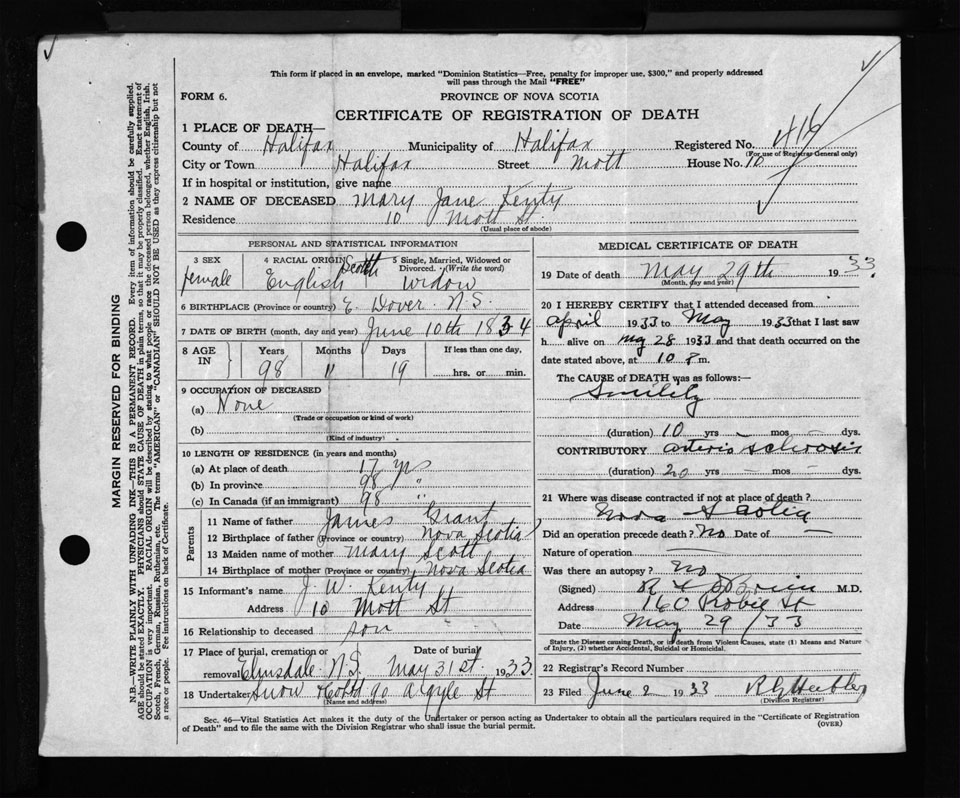 This form if placed in an envelope, marked "Dominion Statistics—Free, penalty for improper use, $300," and properly addressed
will pass through the Mail "FREE"
FORM 6.
PROVINCE OF NOVA SCOTIA
CERTIFICATE OF REGISTRATION OF DEATH
1 PLACE OF DEATH—
County of Halifax Municipality of Halifax Registered No. 416
(For use of Registrar General only)
City or Town Halifax Street Mott House No. 10
If in hospital or institution, give name
2 NAME OF DECEASED Mary Jane Kenty
Residence 10 Mott St
(Usual place of abode)
PERSONAL AND STATISTICAL INFORMATION
3 SEX 4 RACIAL ORIGIN 5 Single, Married, Widowed or Divorced. (Write the word)
Female English Scotch Widow
6 BIRTHPLACE (Province or country) E. Dover N.S.
7 DATE OF BIRTH (month, day and year) June 10th 1834
8 AGE IN Years Months Days If less than one day,
98 11 19 hrs. or min.
9 OCCUPATION OF DECEASED
(a) None
(Trade or occupation or kind of work)
(b)
(Kind of industry)
10 LENGTH OF RESIDENCE (in years and months)
(a) At place of death 17 yrs
(b) In province 98 "
(c) In Canada (if an immigrant) 98 "
Parents
11 Name of father James Grant
12 Birthplace of father (Province or country) Nova Scotia
13 Maiden name of mother Mary Scott
14 Birthplace of mother (Province or country) Nova Scotia
15 Informant's name J. W. Kenty
Address 10 Mott St
16 Relationship to deceased son
17 Place of burial, cremation or removal Date of burial
Elmsdale N.S. May 31st 1933
18 Undertaker Snow & Co Ltd 90 Argyle St
(Name and address)
MEDICAL CERTIFICATE OF DEATH
19 Date of death May 29th 1933.
(Month, day and year)
20 I HEREBY CERTIFY that I attended deceased from
April 1933 to May 1933 that I last saw
h alive on May 28 1933 and that death occurred on the
date stated above, at 10 P m.
The CAUSE of DEATH was as follows:—
Senility
(duration) 10 yrs – mos – dys.
CONTRIBUTORY arterio sclerosis
(duration) 20 yrs – mos – dys.
21 Where was disease contracted if not at place of death?
Nova Scotia
Did an operation precede death? No Date of —
Nature of operation —
Was there an autopsy? no
(Signed) O'Brien M.D.
Address 160 Robie St
Date May 29/33
State the Disease causing Death, or in death from Violent Causes, state (1) Means and Nature
of Injury, (2) whether Accidental, Suicidal or Homicidal.
22 Registrar's Record Number
23 Filed June 2 1933
(Division Registrar)
Sec. 46—Vital Statistics Act makes it the duty of the Undertaker or person acting as Undertaker to obtain all the particulars required in the "Certificate of Registration
of Death" and to file the same with the Division Registrar who shall issue the burial permit.
(OVER)
MARGIN RESERVED FOR BINDING
N.B.—WRITE PLAINLY WITH UNFADING INK—THIS IS A PERMANENT RECORD. Every item of information should be carefully supplied.
AGE should be stated EXACTLY. PHYSICIANS should STATE CAUSE OF DEATH in plain terms, so that it may be properly classified. Exact statement of
OCCUPATION is very important. RACIAL ORIGIN will be described by stating to what people or race the deceased person belonged, whether English, Irish,
Scotch, French, German, Russian, Ruthenian, etc. The terms "AMERICAN" or "CANADIAN" SHOULD NOT BE USED as they express citizenship but not
a race or people. Fee instructions on back of Certificate.